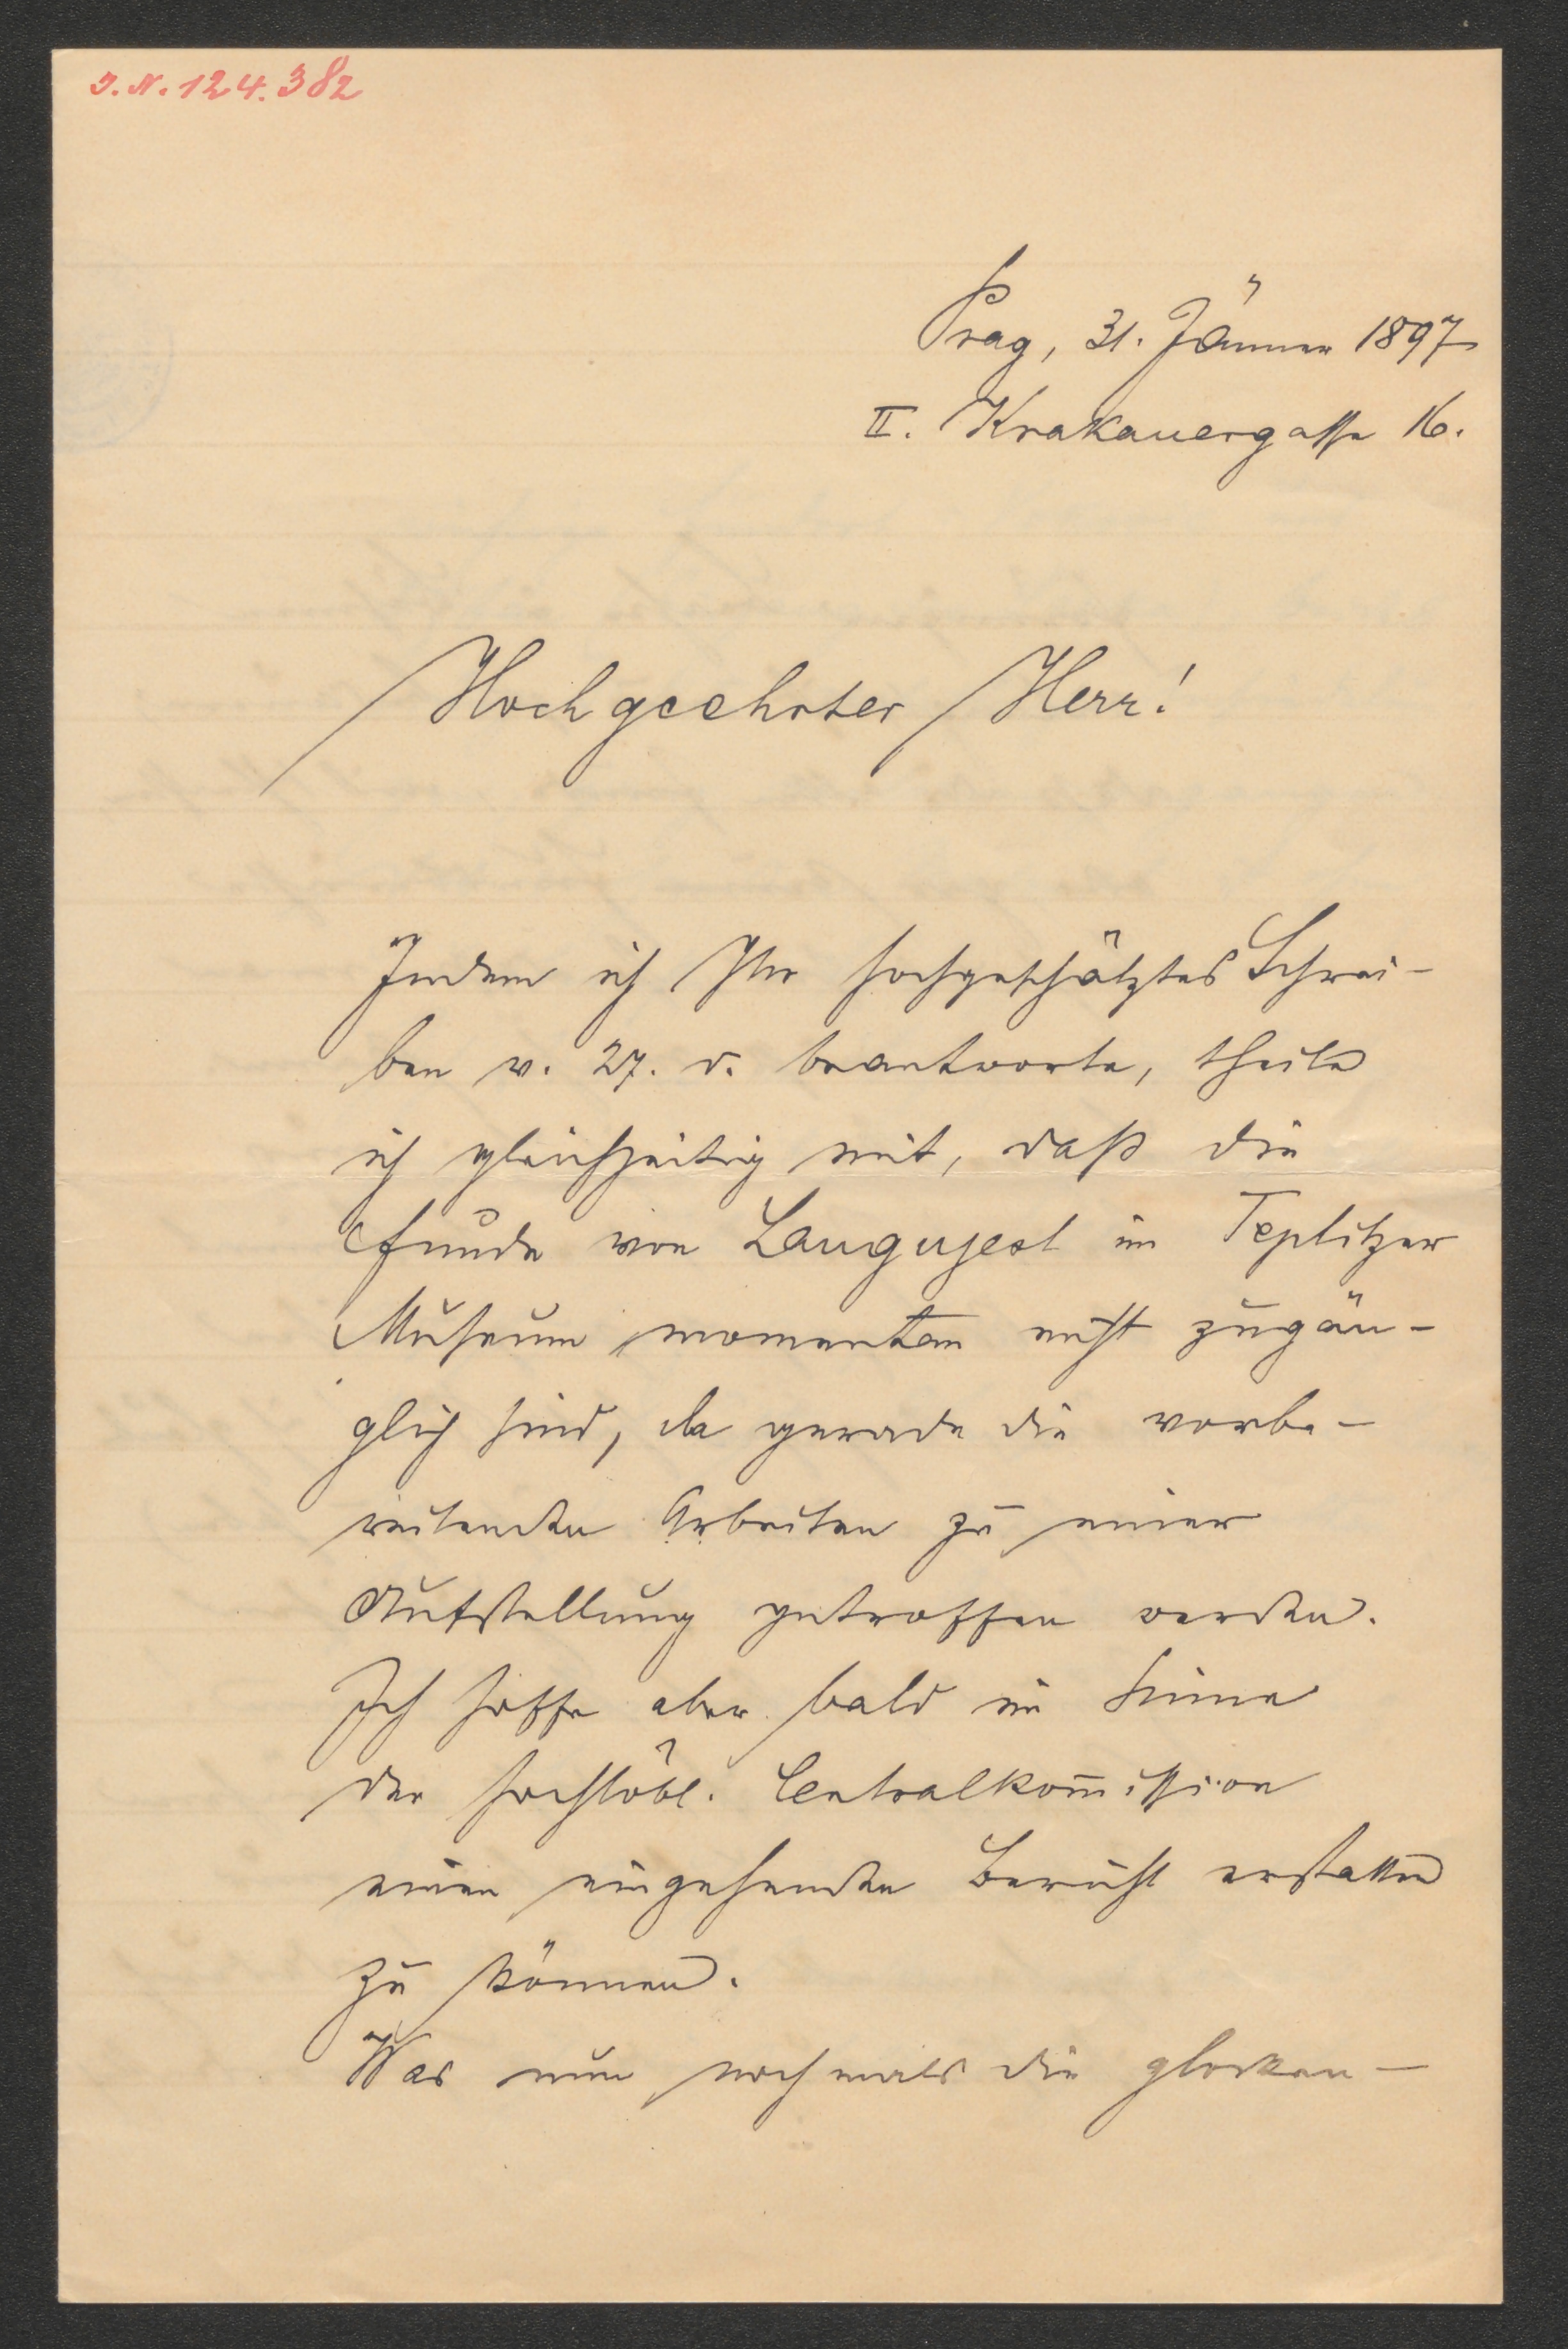 J. N. 124.382
Prag, 31. Jänner 1897
II. Krakauergasse 16.
Hochgeehrter Herr!
Indem ich Ihr hochgeschätztes Schrei-
ben v. 27. d. beantworte, theile
ich gleichzeitig mit, daß die
Funde von Langugest im Teplitzer
Museum momentan nicht zugän-
glich sind, da gerade die vorbe-
reitenden Arbeiten zu einer
Aufstellung getroffen werden.
Ich hoffe aber bald im Sinne
der hochlöbl. Centralkom̅ission
einen eingehenden Bericht erstatten
zu können.
Was nun nochmals die glocken-